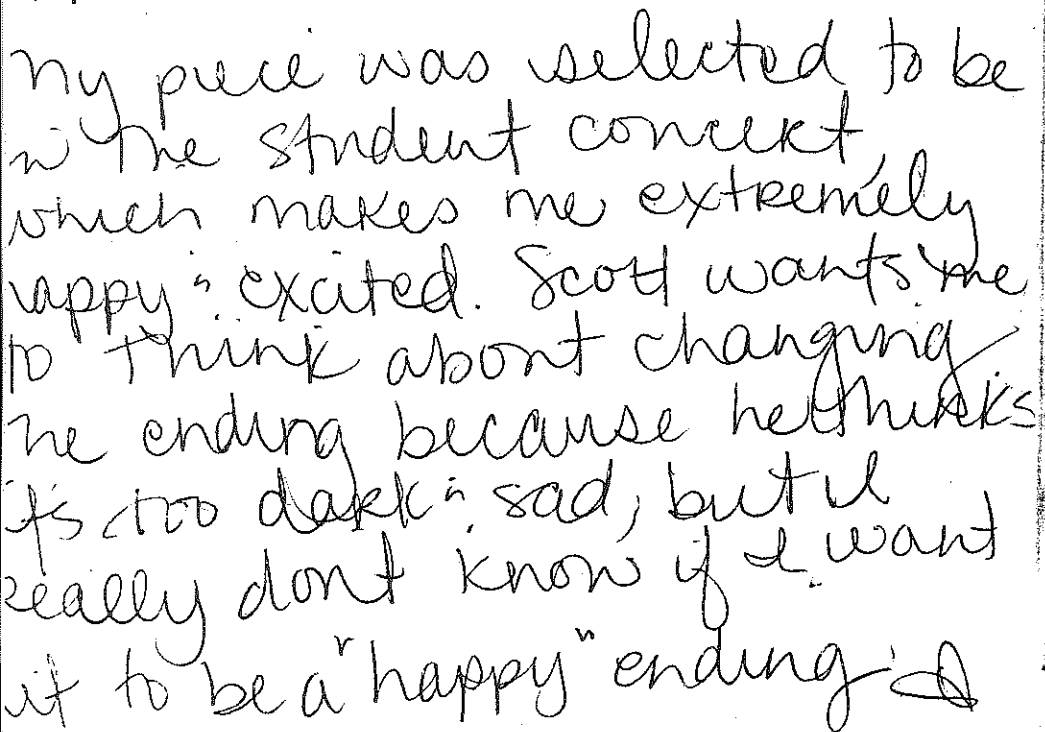 My piece was selected to be
in the student concert,
which makes me extremely
happy & excited. Scott wants me
to think about changing
the ending because he thinks
it's too dark & sad, but I
really dont know if I want
it to be a "happy" ending. I